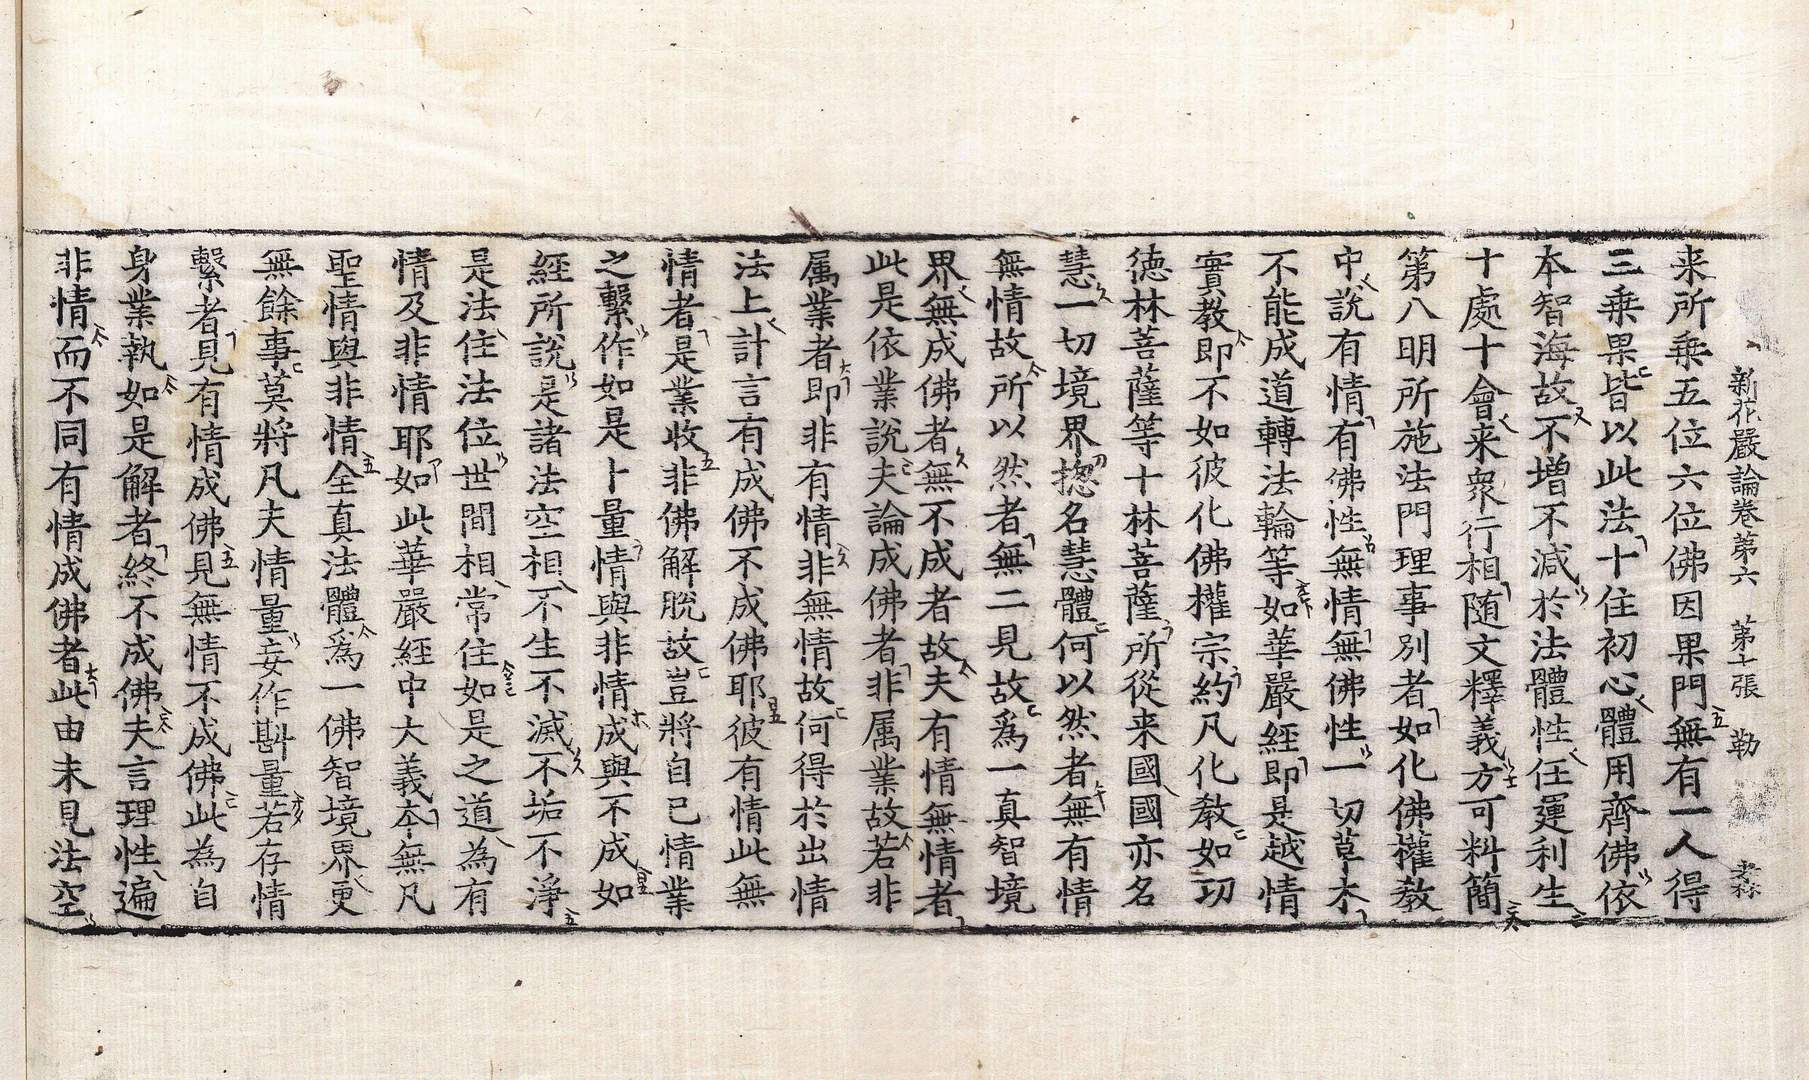 新花嚴論卷第六　第十張　勒
来所乗五位六位佛因果門無有一人得
三乗果皆以此法十住初心體用齊佛依
本智海故不增不減於法體性任運利生
十處十會来衆行相随文釋義方可料簡
第八明所施法門理事别者如化佛權教
中說有情有佛性無情無佛性一切草木
不能成道轉法輪等如華嚴經即是越情
實教即不如彼化佛權宗約凡化教如切
徳林菩薩等十林菩薩所從来國國亦名
慧一切境界揔名慧體何以然者無有情
無情故所以然者無二見故為一真智境
界無成佛者無不成者故夫有情無情者
此是依業說夫論成佛者非属業故若非
属業者即非有情非無情故何得於出情
法上計言有成佛不成佛耶彼有情此無
情者是業收非佛解脫故豈將自己情業
之繫作如是卜量情與非情成與不成如
經所說是諸法空相不生不滅不垢不淨
是法住法位世間相常住如是之道為有
情及非情耶如此華嚴經中大義本無凡
聖情與非情全真法體為一佛智境界更
無餘事莫將凡夫情量妄作斟量若存情
繫者見有情成佛見無情不成佛此為自
身業執如是解者終不成佛夫言理性遍
非情而不同有情成佛者此由未見法空